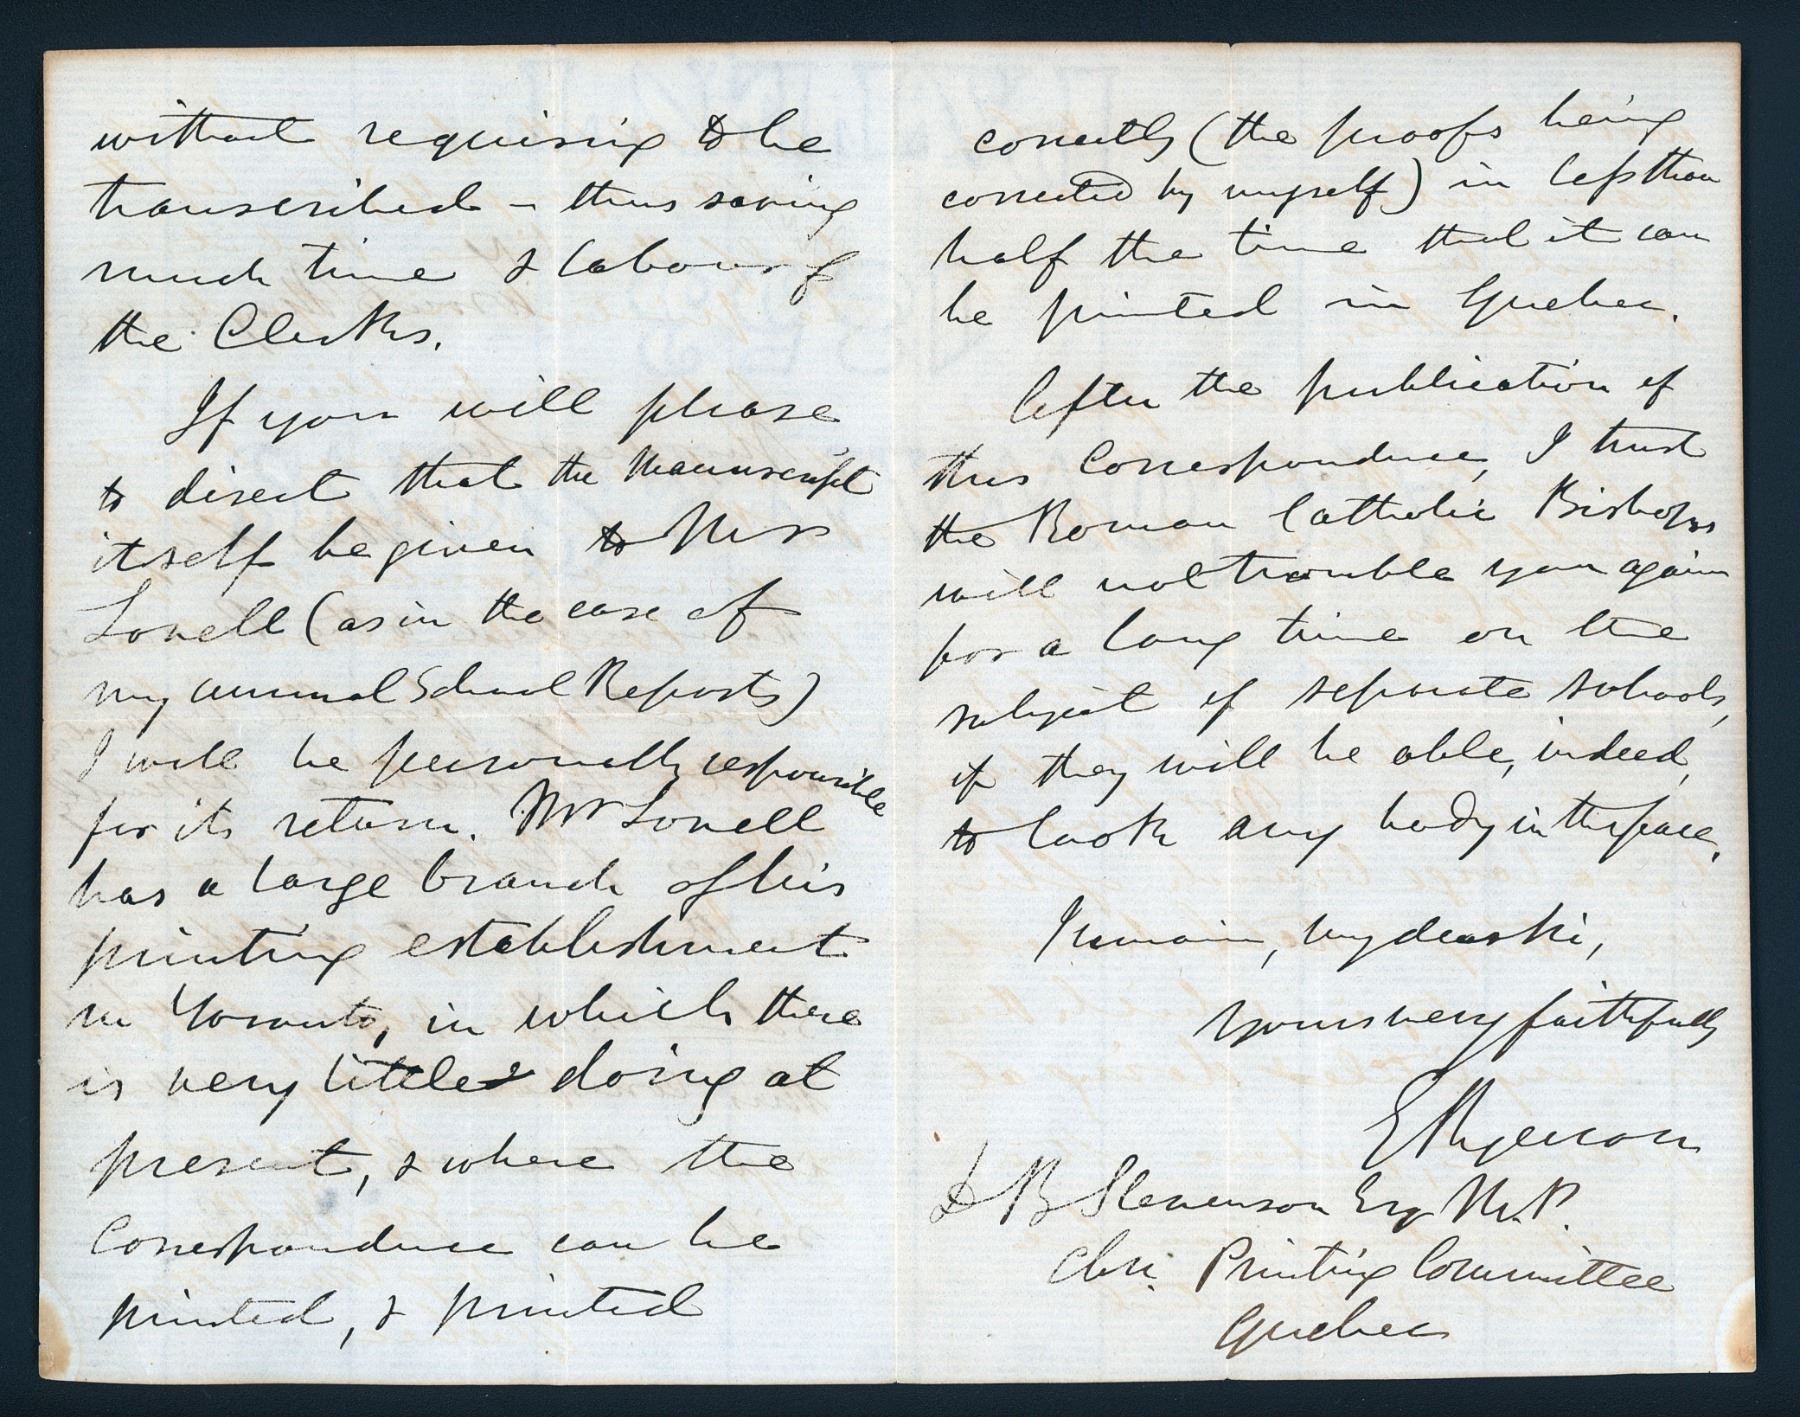 without requiring to be
transcribed – thus saving
much time & labour of
the Clerks.
If you will please
to direct that the Manuscript
itself be given to Mr
Lovell (as in the case of
my annual School Reports)
I will be personally responsible
for its return. Mr Lovell
has a large branch of his
printing establishment
in Toronto, in which there
is very little doing at
present, & where the
Correspondence can be
printed, & printed
correctly (the proofs being
corrected by myself) in less than
half the time that it can
be printed in Quebec.
After the publication of
this Correspondence, I trust
the Roman Catholic Bishops
will not trouble you again
for a long time on the
subject of separate schools,
if they will be able, indeed,
to look any body in the face.
I remain, my dear Sir,
Yours very faithfully
E Ryerson
D B Stevenson Esq M.P.
Chn. Printing Committee
Quebec